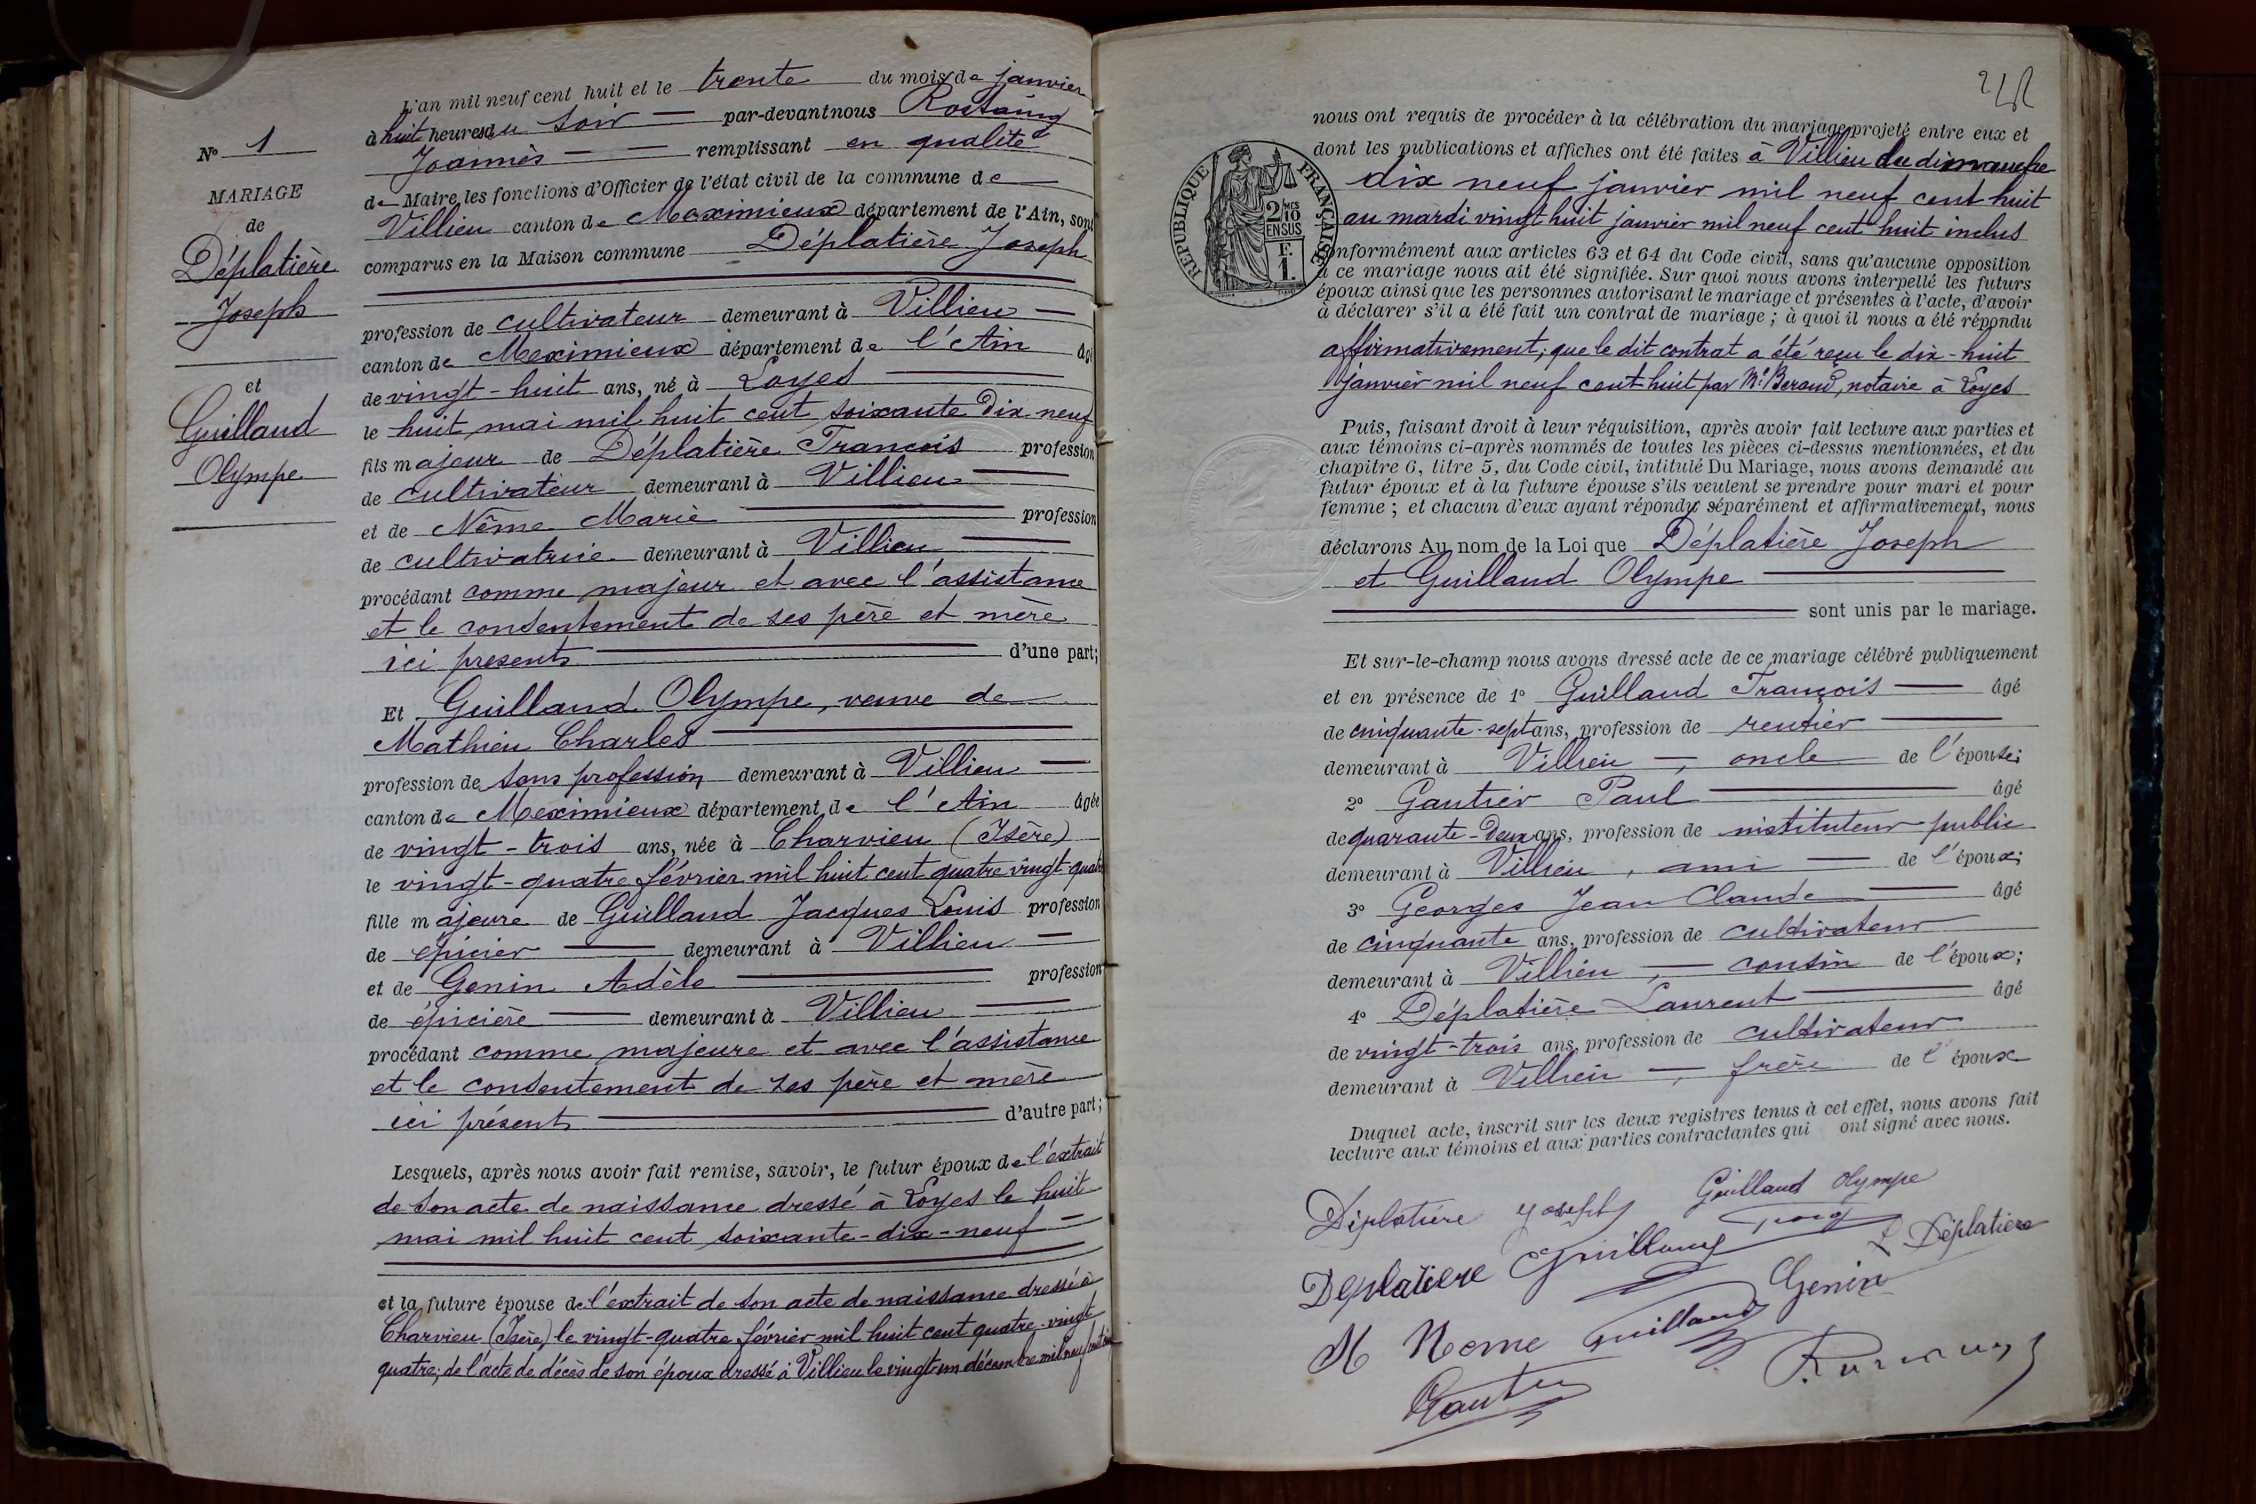 L'an mil neuf cent huit et le trente du mois de janvier
à huit heures du soir par-devant nous Rostaing
Joannès remplissant en qualité
de Maire les fonctions d'Officier de l'état civil de la commune de
Villieu canton de Meximieux département de l'Ain, sont
comparus en la Maison commune Déplatière Joseph
profession de cultivateur demeurant à Villieu
canton de Meximieux département de l'Ain âgé
de vingt-huit ans, né à Loyes
le huit mai mil huit cent soixante dix neuf
fils majeur de Déplatière François profession
de cultivateur demeurant à Villieu
et de Nême Marie profession
de cultivatrice demeurant à Villieu
procédant comme majeur et avec l'assistance
et le consentement de ses père et mère
ici présents d'une part;
Et Guilland Olympe, veuve de
Mathieu Charles
profession de sans profession demeurant à Villieu
canton de Meximieux département de l'Ain âgée
de vingt-trois ans, née à Charvieu (Isère)
le vingt-quatre février mil huit cent quatre vingt quatre
fille majeure de Guilland Jacques Louis profession
de épicier demeurant à Villieu
et de Genin Adèle profession
de épicière demeurant à Villieu
procédant comme majeure et avec l'assistance
et le consentement de ses père et mère
ici présents d'autre part;
Lesquels, après nous avoir fait remise, savoir, le futur époux de l'extrait
de son acte de naissance dressé à Loyes le huit
mai mil huit cent soixante-dix-neuf
et la future épouse de l'extrait de son acte de naissance dressé à
Charvieu (Isère) le vingt-quatre février mil huit cent quatre-vingt
quatre; de l'acte de décès de son époux dressé à Villieu le vingt-un décembre mil neuf cent
N° 1
MARIAGE
de
Déplatière
Joseph
et
Guilland
Olympe
nous ont requis de procéder à la célébration du mariage projeté entre eux et
dont les publications et affiches ont été faites à Villieu du dimanche
dix neuf janvier mil neuf cent huit
au mardi vingt huit janvier mil neuf cent huit inclus
conformément aux articles 63 et 64 du Code civil, sans qu'aucune opposition
à ce mariage nous ait été signifiée. Sur quoi nous avons interpellé les futurs
époux ainsi que les personnes autorisant le mariage et présentes à l'acte, d'avoir
à déclarer s'il a été fait un contrat de mariage; à quoi il nous a été répondu
affirmativement; que le dit contrat a été reçu le dix-huit
janvier mil neuf cent huit par Me Beraud, notaire à Loyes
Puis, faisant droit à leur réquisition, après avoir fait lecture aux parties et
aux témoins ci-après nommés de toutes les pièces ci-dessus mentionnées, et du
chapitre 6, titre 5, du Code civil, intitulé Du Mariage, nous avons demandé au
futur époux et à la future épouse s'ils veulent se prendre pour mari et pour
femme; et chacun d'eux ayant répondu séparément et affirmativement, nous
déclarons Au nom de la Loi que Déplatière Joseph
et Guilland Olympe
sont unis par le mariage.
Et sur-le-champ nous avons dressé acte de ce mariage célébré publiquement
et en présence de 1° Guilland François âgé
de cinquante-sept ans, profession de rentier
demeurant à Villieu, oncle de l'épouse;
2° Gautier Paul âgé
de quarante-deux ans, profession de instituteur public
demeurant à Villieu, ami de l'époux;
3° Georges Jean Claude âgé
de cinquante ans, profession de cultivateur
demeurant à Villieu, cousin de l'époux;
4° Déplatière Laurent âgé
de vingt-trois ans, profession de cultivateur
demeurant à Villieu, frère de l'époux
Duquel acte, inscrit sur les deux registres tenus à cet effet, nous avons fait
lecture aux témoins et aux parties contractantes qui ont signé avec nous.
Déplatière Joseph Guilland Olympe
Déplatière Guilland L Déplatière
M Neme Guilland Genin
Gautier
RÉPUBLIQUE FRANÇAISE
2/10 MES
EN SUS
F.
1.